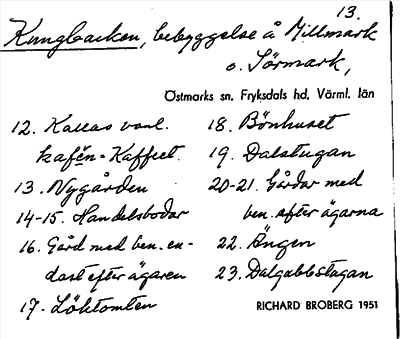 13.
Kungbacken, bebyggelse å Millmark
o. Sörmark,
Östmarks sn. Fryksdals hd. Värml. län
12. Kallas vanl.
kafě́n = Kaffeet.
13. Nygården
14-15. Handelsbodar
16. Gård med ben. en-
dast efter ägaren
17. Löktomten
18. Bönhuset
19. Dalstugan
20-21. Gårdar med
ben. efter ägarna
22. Ängen
23. Dalgubbstugan
RICHARD BROBERG 1951